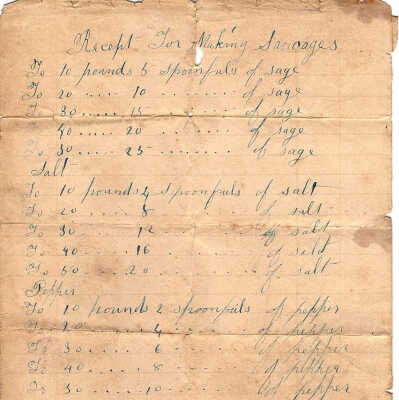 Recept For Making Sausages
To 10 pounds 5 spoonfuls of sage
To 20 ..... 10 ..... of sage
To 30 ..... 15 ..... of sage
To 40 ..... 20 ..... of sage
To 50 ..... 25 ..... of sage
Salt
To 10 pounds 4 spoonfuls of salt
To 20 ..... 8 ..... of salt
To 30 ..... 12 ..... of salt
To 40 ..... 16 ..... of salt
To 50 ..... 20 ..... of salt
Pepper
To 10 pounds 2 spoonfuls of pepper
To 20 ..... 4 ..... of pepper
To 30 ..... 6 ..... of pepper
To 40 ..... 8 ..... of pepper
To 50 ..... 10 ..... of pepper